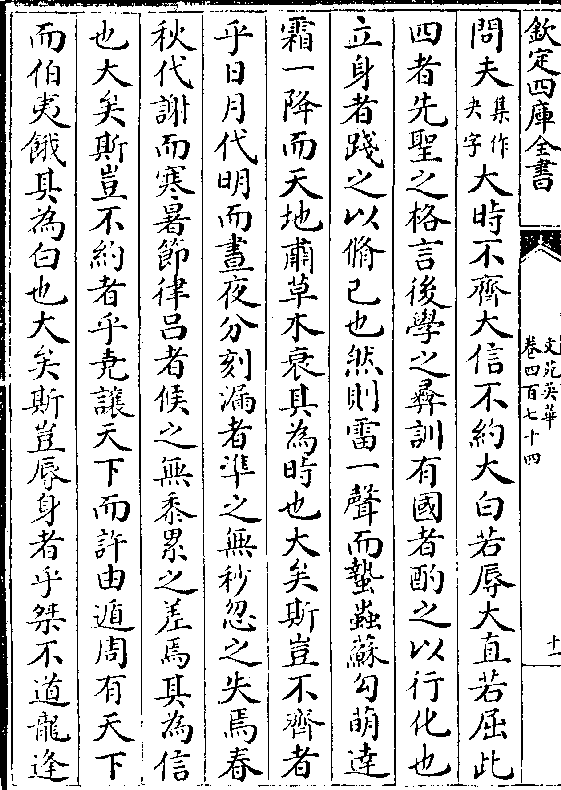 欽定四庫全書
文苑英華
卷四百七十四
十一
問夫集作夫字大時不齊大信不約大白若辱大直若屈此
四者先聖之格言後學之彛訓有國者酌之以行化也
立身者踐之以脩己也然則雷一聲而蟄蟲蘇勾萌達
霜一降而天地肅草木衰其為時也大矣斯豈不齊者
乎日月代明而晝夜分刻漏者準之無秒忽之失焉春
秋代謝而寒暑節律吕者候之無黍累之差焉其為信
也大矣斯豈不約者乎堯讓天下而許由遁周有天下
而伯夷餓其為白也大矣斯豈辱身者乎桀不道龍逢